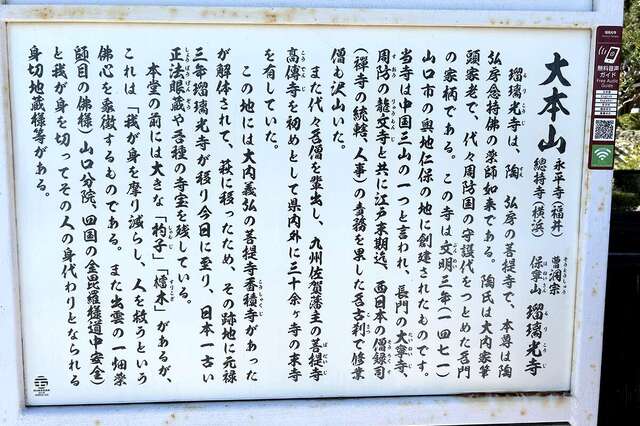 大本山
永平寺(福井)
總持寺(横浜)
曹洞宗
保寧山
瑠璃光寺
瑠璃光寺は、陶 弘房の菩提寺で、本尊は陶
弘房念持佛の薬師如来である。陶氏は大内家筆
頭家老で、代々周防国の守護代をつとめた名門
の家柄である。この寺は文明三年(一四七一)
山口市の奥地仁保の地に創建されたものです。
当寺は中国三山の一つと言われ、長門の大寧寺、
周防の龍文寺と共に江戸末期迄、西日本の僧録司
(禅寺の統轄、人事)の責務を果した名古刹で修業
僧も沢山いた。
また代々名僧を輩出し、九州佐賀藩主の菩提寺
高傳寺を初めとして県内外に三十余ヶ寺の末寺
を有していた。
この地には大内義弘の菩提寺香積寺があった
が解体されて、萩に移ったため、その跡地に元禄
三年瑠璃光寺が移り今日に至り、日本一古い
正法眼蔵や各種の寺宝を残している。
本堂の前には大きな「杓子」「擂木」があるが、
これは「我が身を摩り減らし、人を救うという
佛心を象徴するものである。また出雲の一畑薬
師(目の佛様)山口分院、四国の金毘羅様道中安全)
と我が身を切ってその人の身代わりとなられる
身切地蔵様等がある。
無料音声
ガイド
Free Audio
Guide